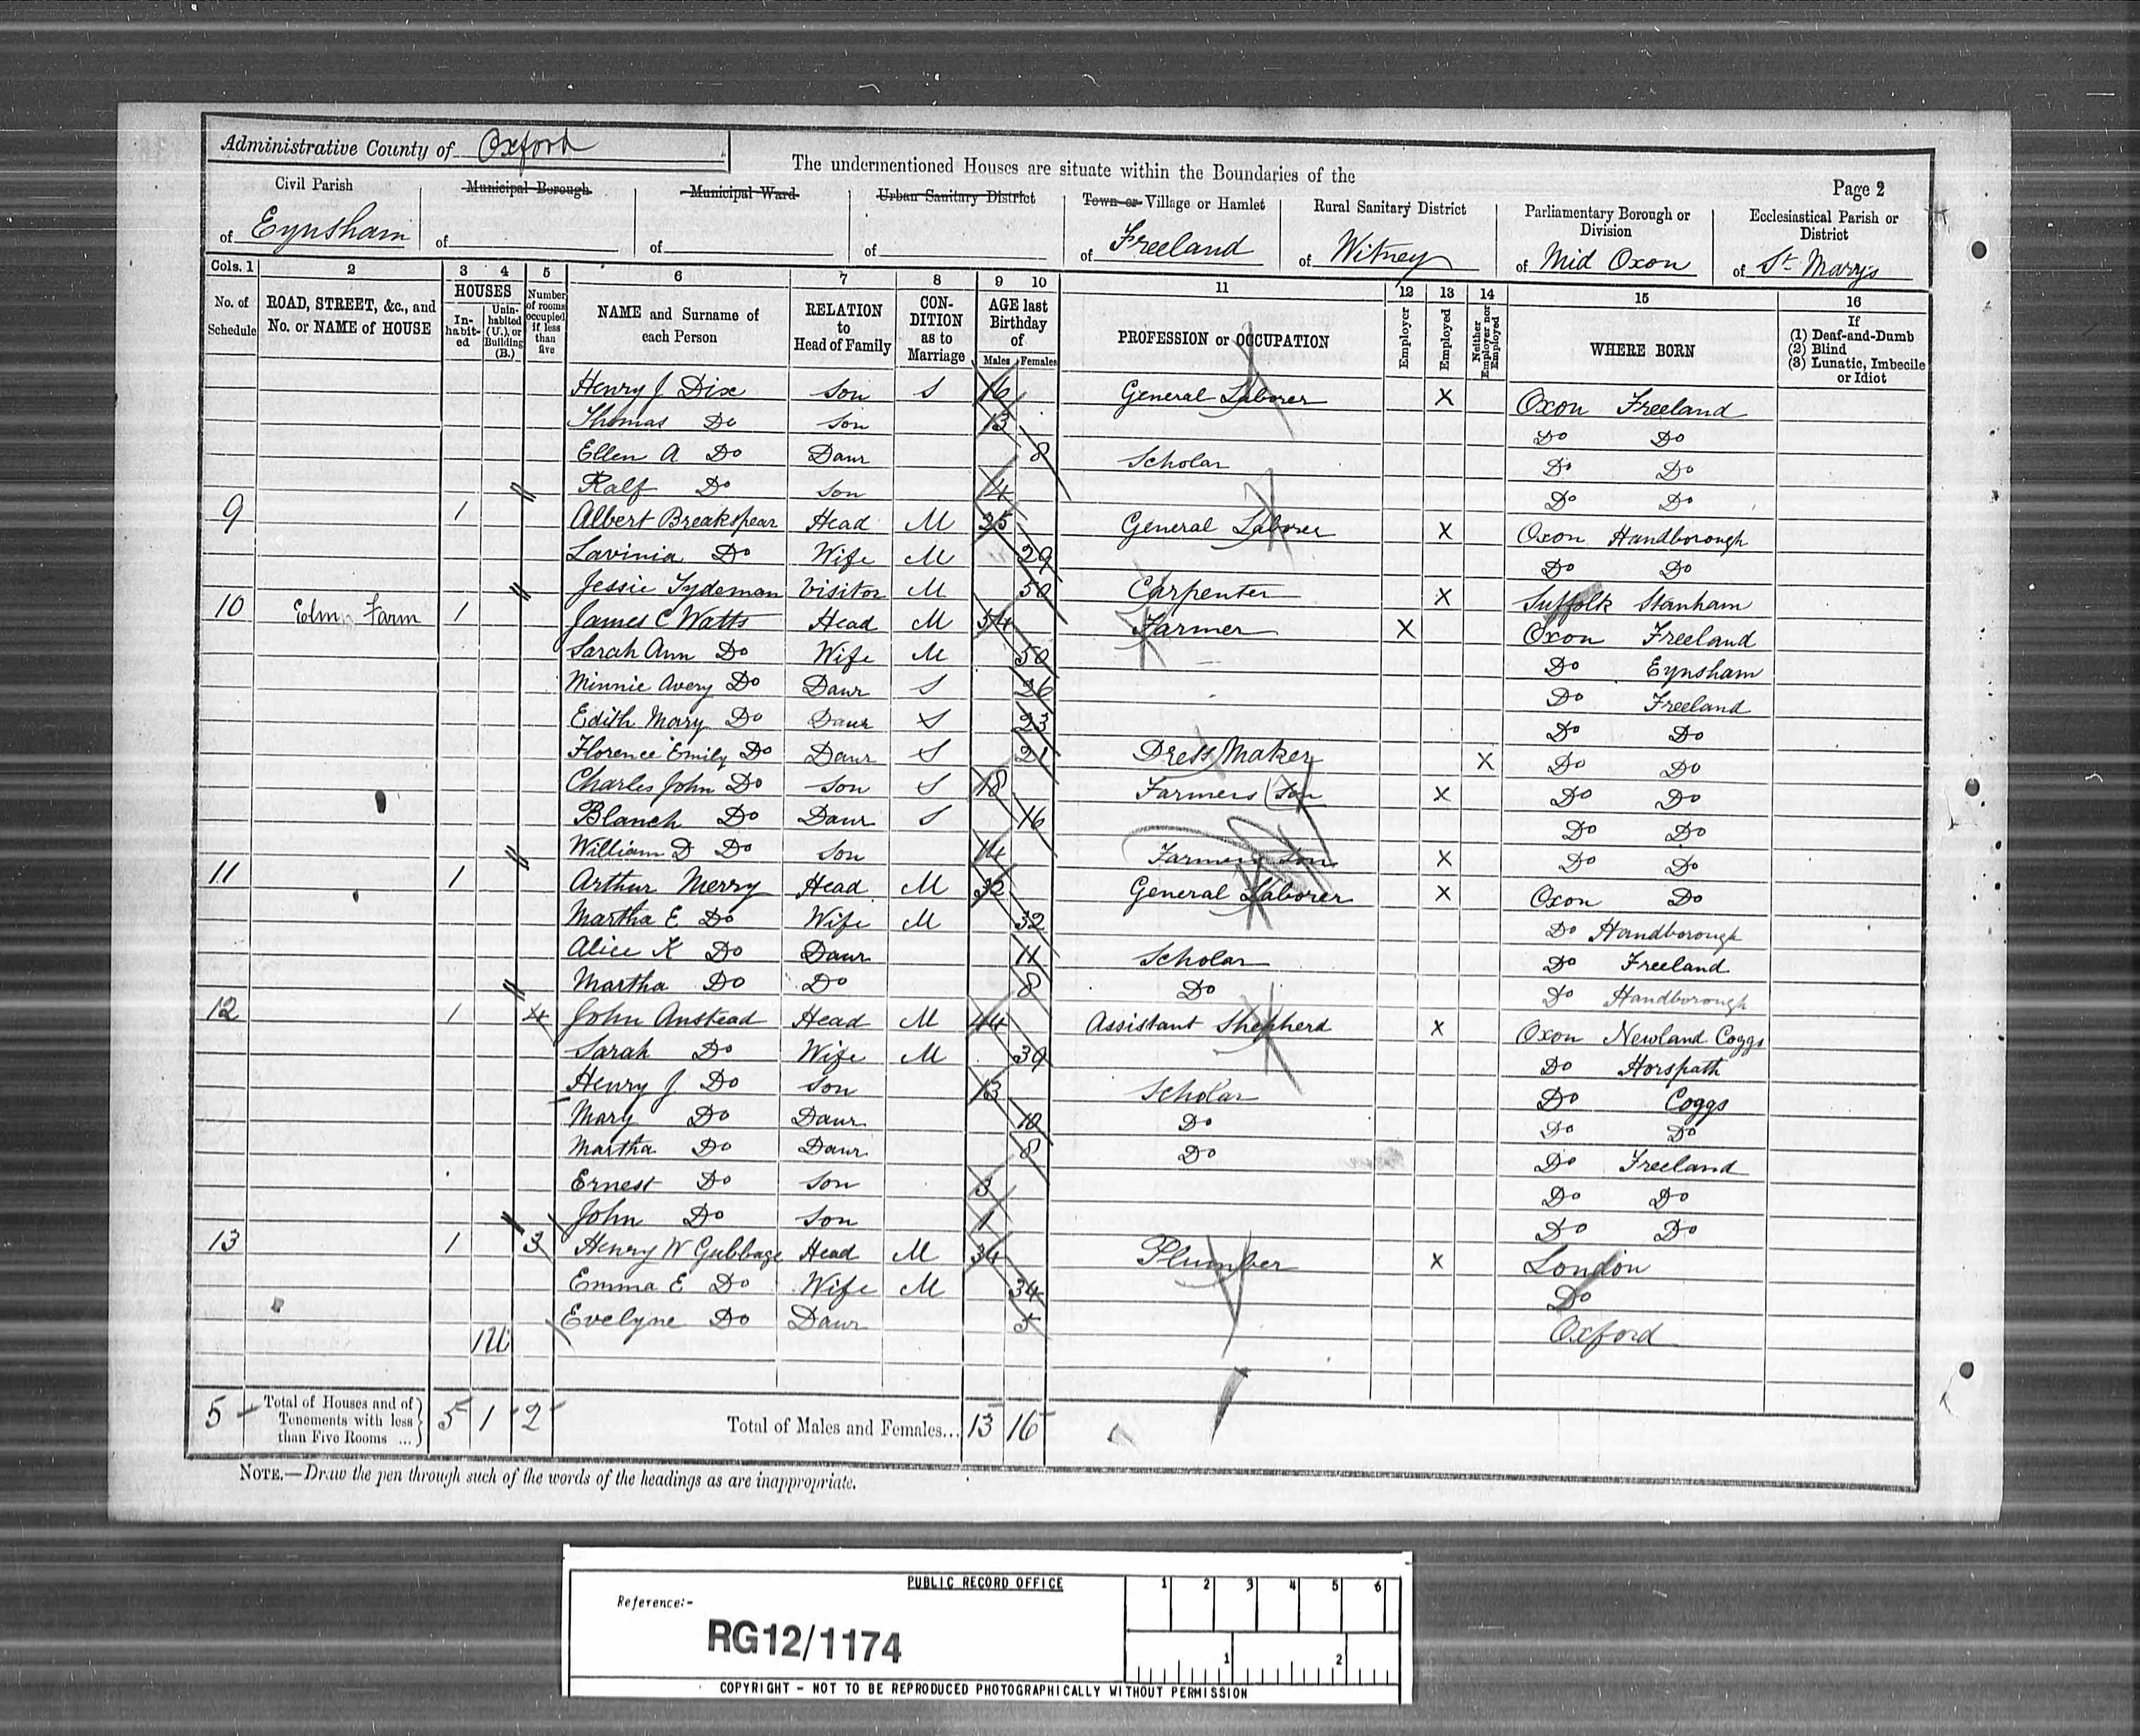 Administrative County of Oxford
The undermentioned Houses are situate within the Boundaries of the
Page 2
Civil Parish of Eynsham
Municipal Borough of
Municipal Ward of
Urban Sanitary District of
Town or Village or Hamlet of Freeland
Rural Sanitary District of Witney
Parliamentary Borough or Division of Mid Oxon
Ecclesiastical Parish or District of St Marys
Cols. 1 2 3 4 5 6 7 8 9 10 11 12 13 14 15 16
No. of Schedule
ROAD, STREET, &c., and No. or NAME of HOUSE
HOUSES
In-habit-ed
Unin-habited (U.), or Building (B.)
Number of rooms occupied if less than five
NAME and Surname of each Person
RELATION to Head of Family
CON-DITION as to Marriage
AGE last Birthday of
Males Females
PROFESSION or OCCUPATION
Employer
Employed
Neither Employer nor Employed
WHERE BORN
If (1) Deaf-and-Dumb (2) Blind (3) Lunatic, Imbecile or Idiot
Henry J Dix Son S 16 General Laborer X Oxon Freeland
Thomas Do Son 13 Do Do
Ellen A Do Daur 8 Scholar Do Do
Ralf Do Son 4 Do Do
9 1 Albert Breakspear Head M 35 General Laborer X Oxon Handborough
Lavinia Do Wife M 29 Do Do
Jessie Tydeman Visitor M 50 Carpenter X Suffolk Stanham
10 Elm Farm 1 James C Watts Head M 54 Farmer X Oxon Freeland
Sarah Ann Do Wife M 50 Do Eynsham
Minnie Avery Do Daur S 26 Do Freeland
Edith Mary Do Daur S 23 Do Do
Florence Emily Do Daur S 21 Dress Maker X Do Do
Charles John Do Son S 18 Farmers Son X Do Do
Blanch Do Daur S 16 Do Do
William D Do Son 14 Farmers Son X Do Do
11 1 Arthur Merry Head M 32 General Laborer X Oxon Do
Martha E Do Wife M 32 Do Handborough
Alice K Do Daur 11 Scholar Do Freeland
Martha Do Do 8 Do Do Handborough
12 1 4 John Anstead Head M 44 Assistant Shepherd X Oxon Newland Coggs
Sarah Do Wife M 39 Do Horspath
Henry J Do Son 13 Scholar Do Coggs
Mary Do Daur 10 Do Do Do
Martha Do Daur 8 Do Do Freeland
Ernest Do Son 3 Do Do
John Do Son 1 Do Do
13 1 3 Henry W Gubbage Head M 34 Plumber X London
Emma E Do Wife M 34 Do
Evelyne Do Daur 5 Oxford
1U
5 Total of Houses and of Tenements with less than Five Rooms ... 5 1 2 Total of Males and Females... 13 16
NOTE.—Draw the pen through such of the words of the headings as are inappropriate.
PUBLIC RECORD OFFICE
1 2 3 4 5 6
Reference:-
RG12/1174
1 2
COPYRIGHT - NOT TO BE REPRODUCED PHOTOGRAPHICALLY WITHOUT PERMISSION